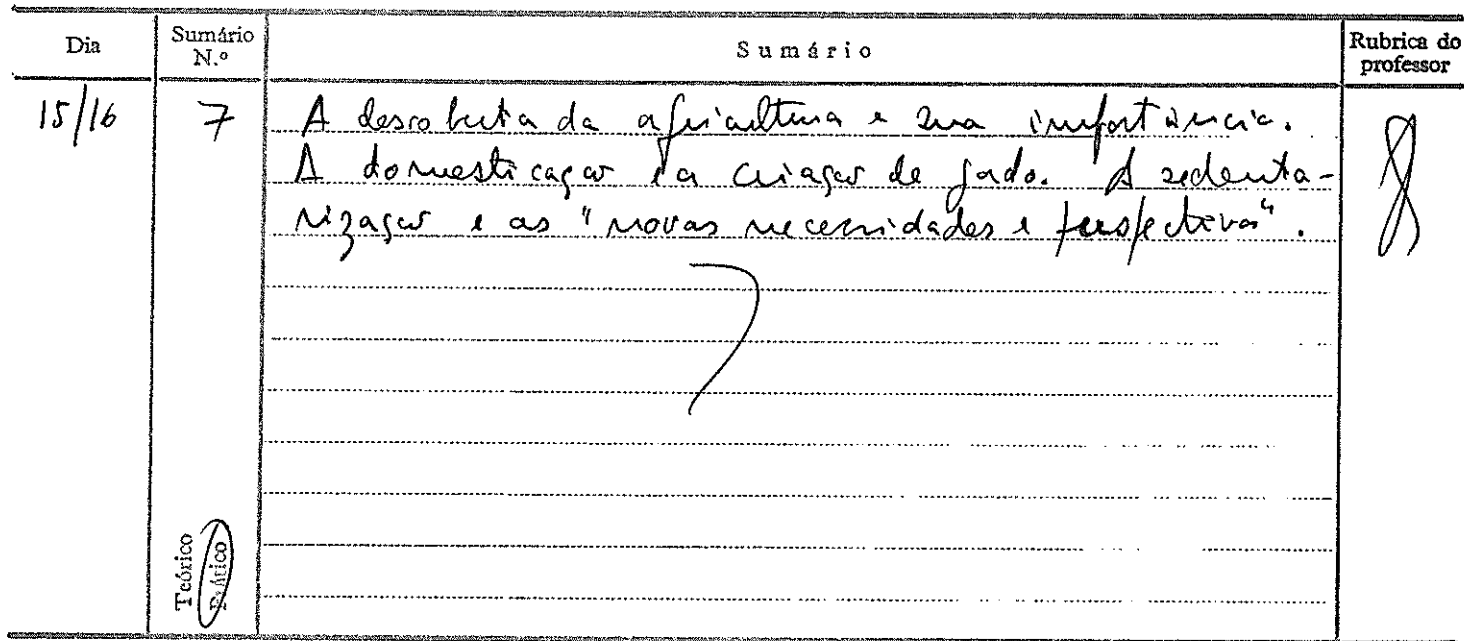 Dia
Sumário N.º
Sumário
Rubrica do professor
15/16
7
A descoberta da agricultura e sua importância.
A domesticação e a criação de gado. A sedenta-
rização e as "novas necessidades e perspectivas".
Teórico
Prático